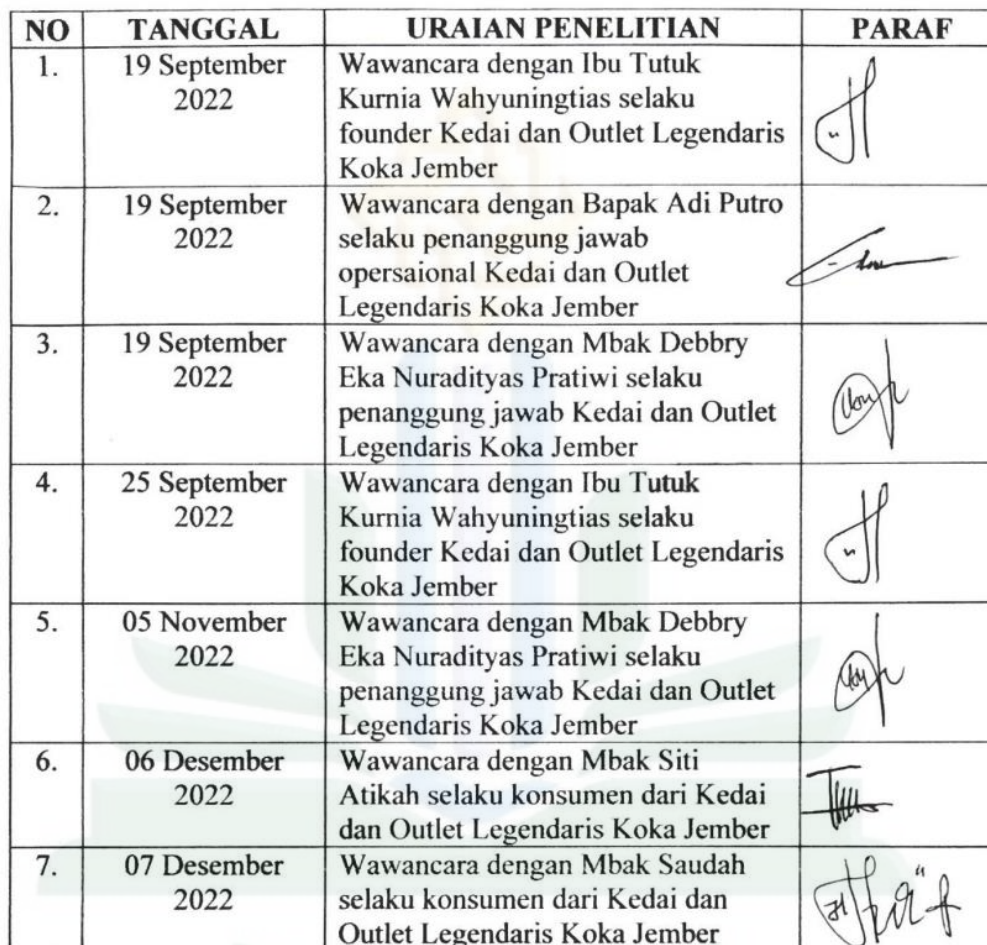 NO TANGGAL URAIAN PENELITIAN PARAF
1. 19 September Wawancara dengan Ibu Tutuk
2022 Kurnia Wahyuningtias selaku
founder Kedai dan Outlet Legendaris
Koka Jember
2. 19 September Wawancara dengan Bapak Adi Putro
2022 selaku penanggung jawab
opersaional Kedai dan Outlet
Legendaris Koka Jember
3. 19 September Wawancara dengan Mbak Debbry
2022 Eka Nuradityas Pratiwi selaku
penanggung jawab Kedai dan Outlet
Legendaris Koka Jember
4. 25 September Wawancara dengan Ibu Tutuk
2022 Kurnia Wahyuningtias selaku
founder Kedai dan Outlet Legendaris
Koka Jember
5. 05 November Wawancara dengan Mbak Debbry
2022 Eka Nuradityas Pratiwi selaku
penanggung jawab Kedai dan Outlet
Legendaris Koka Jember
6. 06 Desember Wawancara dengan Mbak Siti
2022 Atikah selaku konsumen dari Kedai
dan Outlet Legendaris Koka Jember
7. 07 Desember Wawancara dengan Mbak Saudah
2022 selaku konsumen dari Kedai dan
Outlet Legendaris Koka Jember